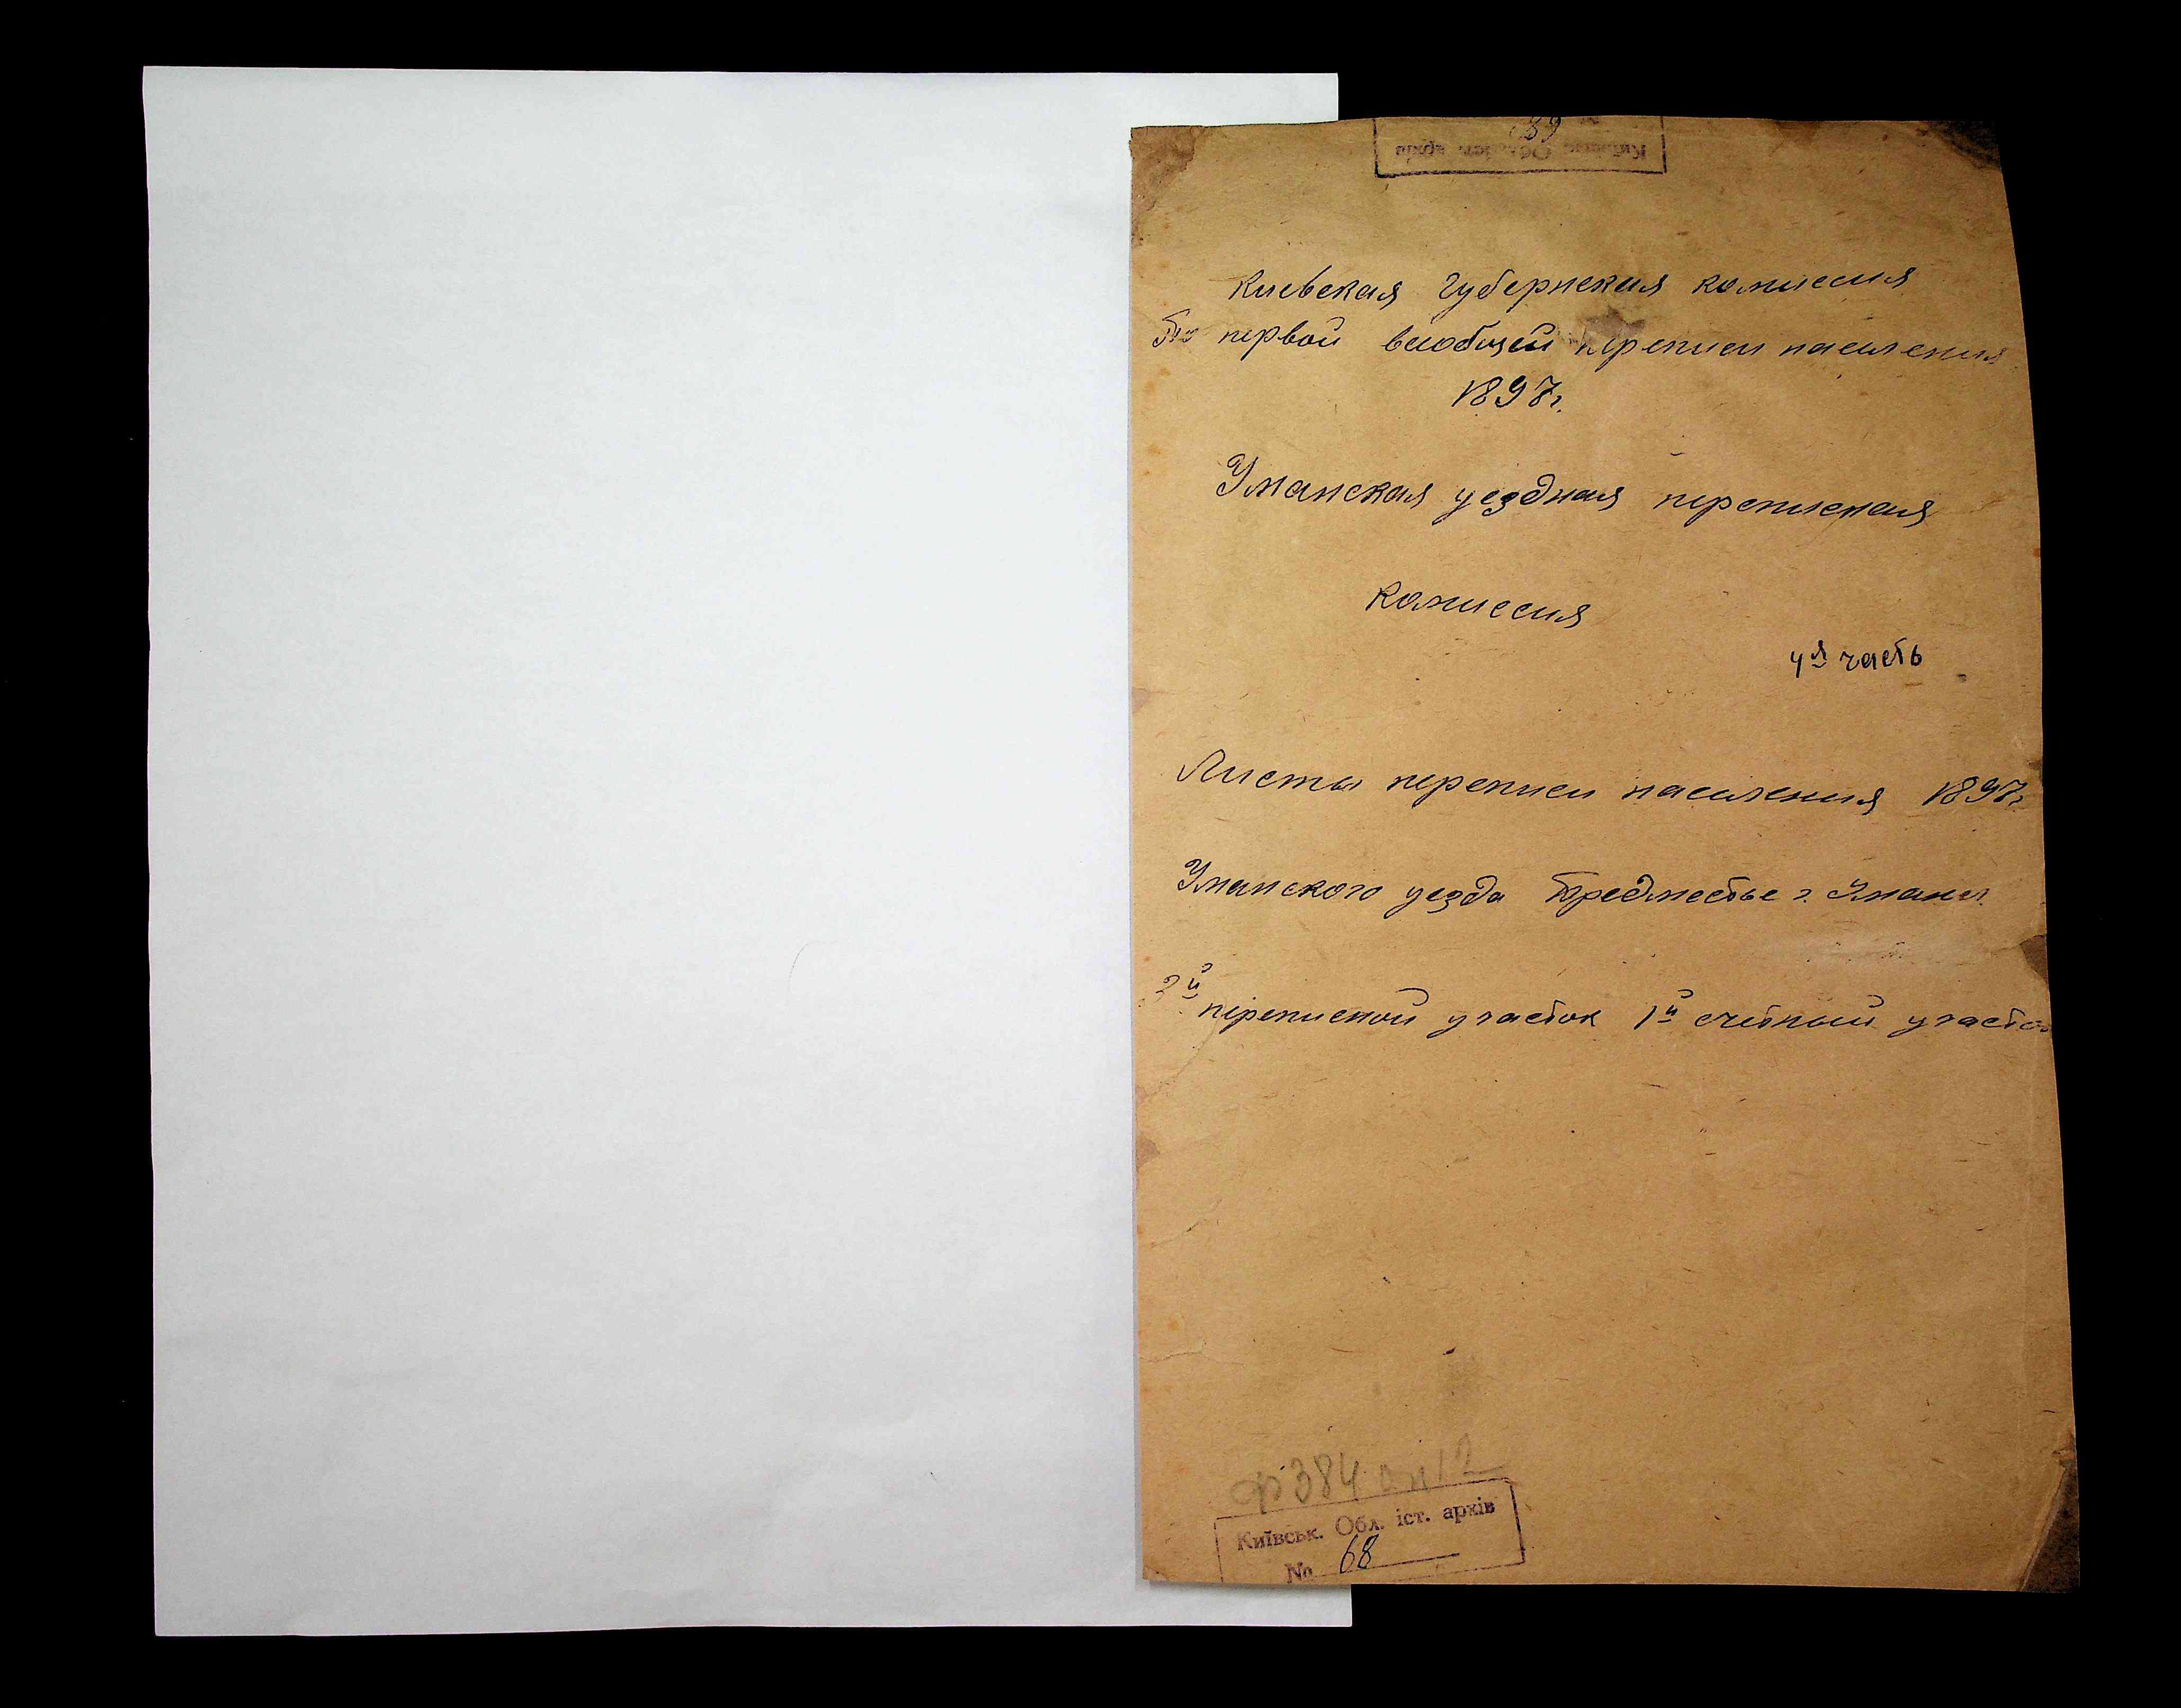 89
Київськ. Обл. іст. архів
Киевская губернская комиссия
По первой всеобщей переписи населения
1897г.
Уманская уездная переписная
комиссия
4я часть
Листы переписи населения 1897г
Уманского уезда Предместье г. Умани
2й переписной участок 1й счетный участок
Ф384 оп 12
Київськ. Обл. іст. архів
№ 68